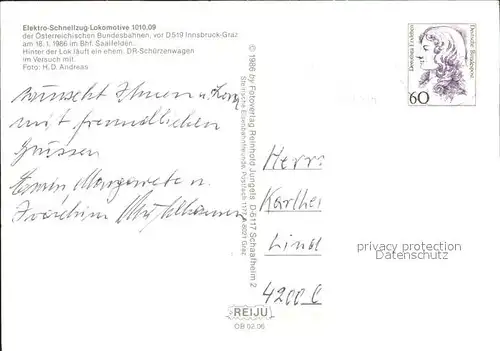 Elektro-Schnellzug-Lokomotive 1010.09
der Österreichischen Bundesbahnen, vor D 519 Innsbruck-Graz
am 18.1.1986 im Bhf. Saalfelden.
Hinter der Lok läuft ein ehem. DR-Schürzenwagen
im Versuch mit.
Foto: H.D. Andreas
wünscht Ihnen u.
mit freundlichen
Grüssen
Erwin, Margarete u.
Joachim Mühlhausen
© 1986 by Fotoverlag Reinhold Jungels, D-6117 Schaafheim 2
Steirische Eisenbahnfreunde, Postfach 1177, A-8021 Graz
Dorothea Erxleben
Deutsche Bundespost
60
Herrn
Karlhei
Lind
4200
privacy protection
Datenschutz
REIJU
OB 02.06